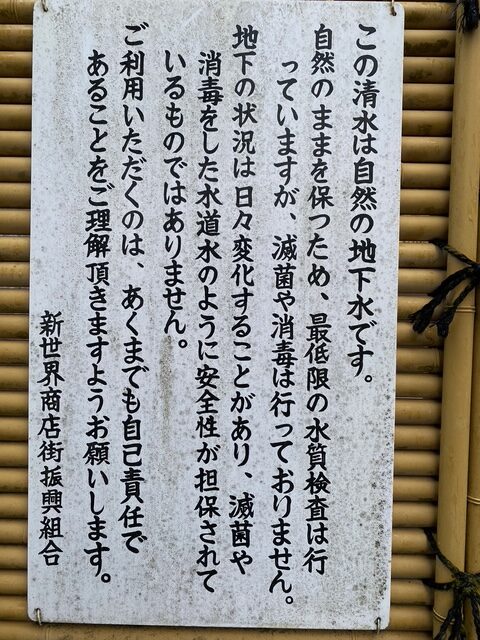 この清水は自然の地下水です。
自然のままを保つため、最低限の水質検査は行
っていますが、滅菌や消毒は行っておりません。
地下の状況は日々変化することがあり、滅菌や
消毒をした水道水のように安全性が担保されて
いるものではありません。
ご利用いただくのは、あくまでも自己責任で
あることをご理解頂きますようお願いします。
新世界商店街振興組合